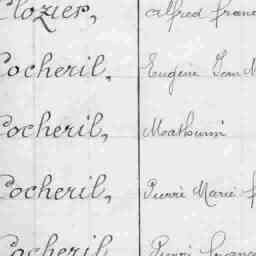 Clozier, Alfred Franc
Cocheril, Eugène Jean M
Cocheril, Mathurin
Cocheril, Pierre Marie F
Cocheril Pierre França